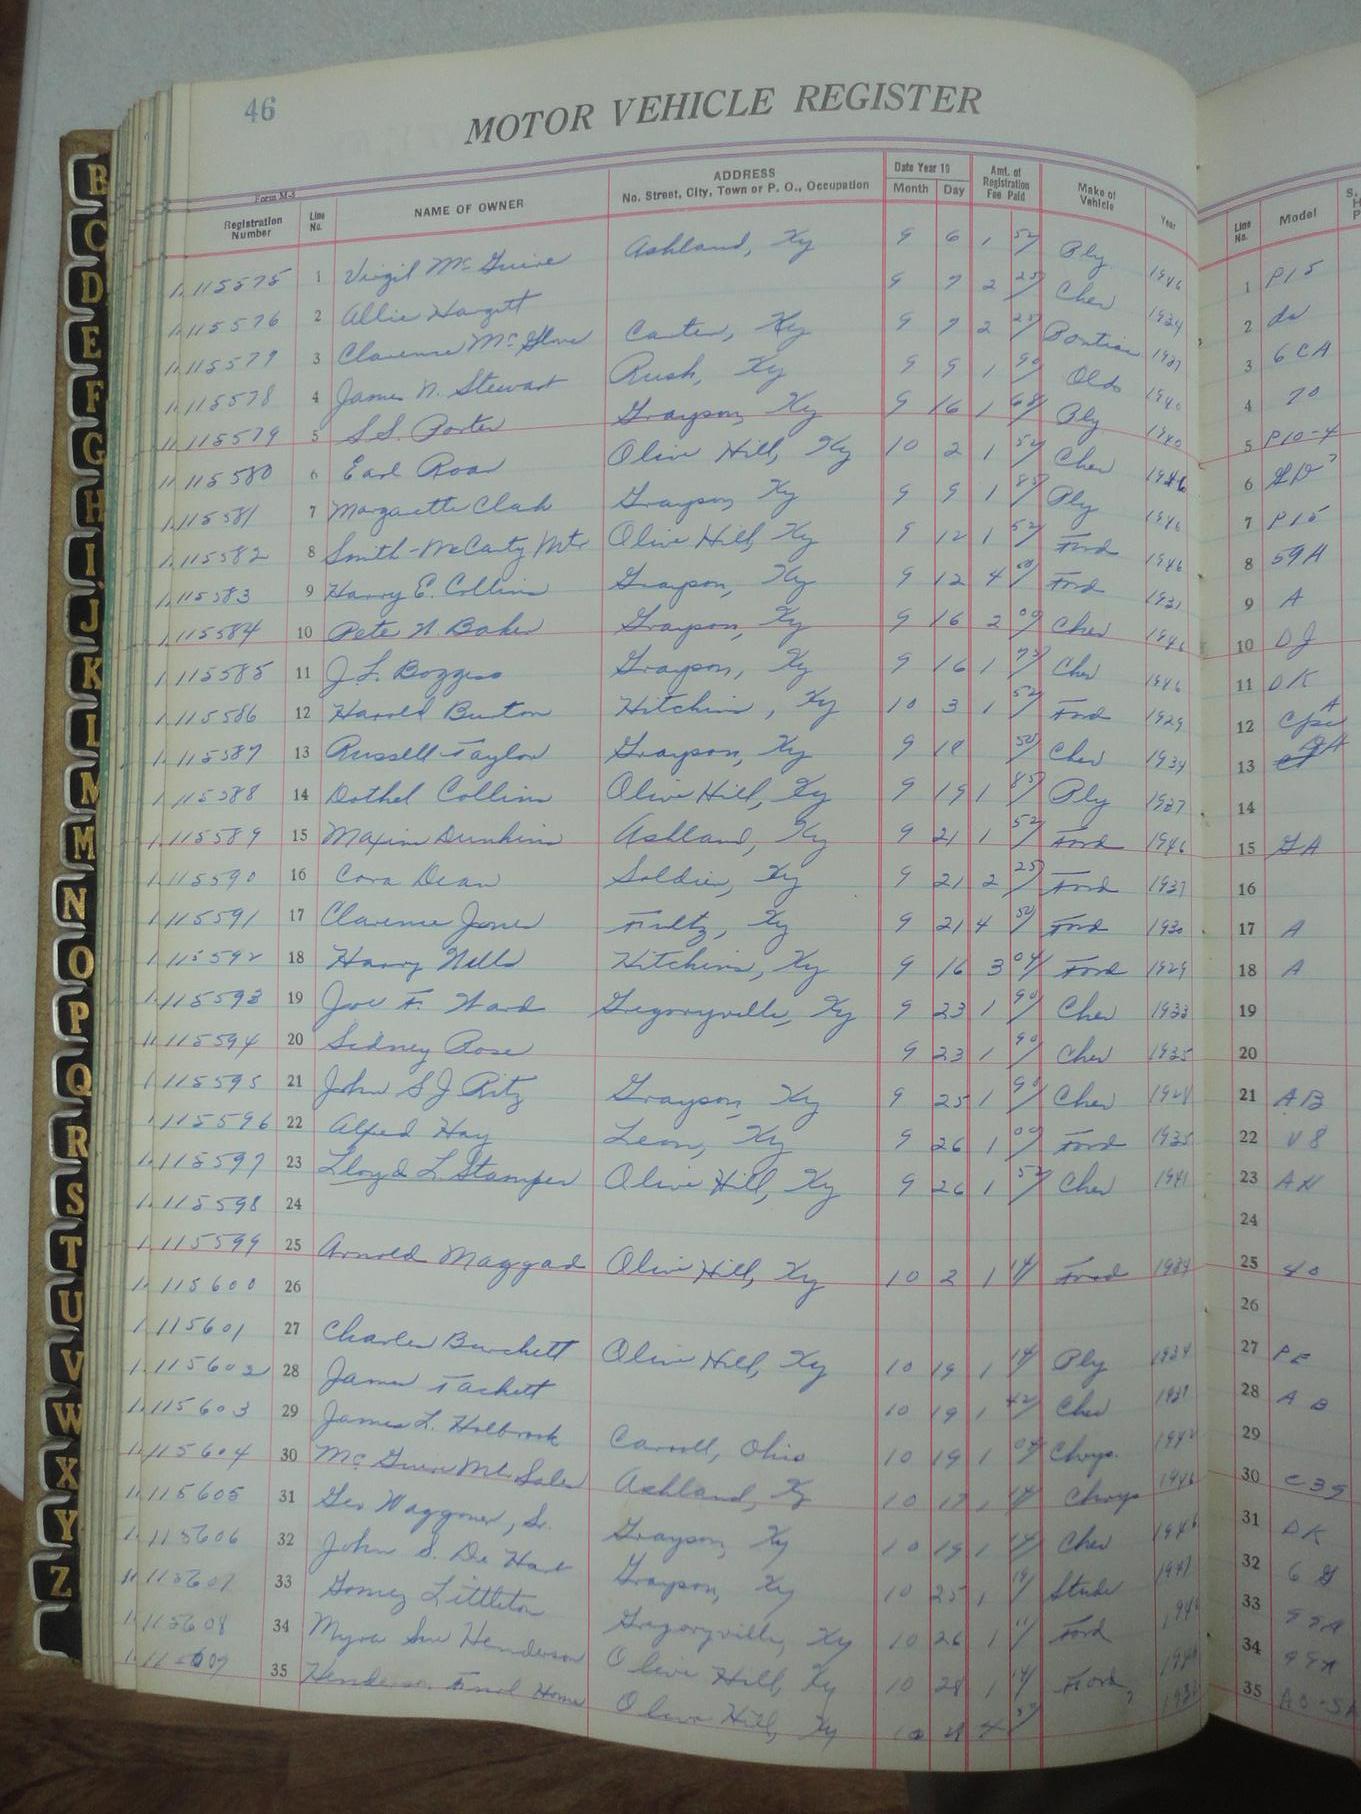 46
MOTOR VEHICLE REGISTER
Form M-5
Registration Number Line No. NAME OF OWNER ADDRESS No. Street, City, Town or P. O., Occupation Date Year 19 Month Day Amt. of Registration Fee Paid Make of Vehicle Year Line No. Model
115575 1 Virgil McGuire Ashland, Ky 9 6 1 52 Ply 1946 1 P15
115576 2 Allie Hargett 9 7 2 25 Chev 1934 2 do
115577 3 Clarence McGlone Carter, Ky 9 7 2 25 Pontiac 1937 3 6CA
115578 4 James N. Stewart Rush, Ky 9 9 1 90 Olds 1940 4 70
115579 5 S.S. Porter Grayson, Ky 9 16 1 68 Ply 1940 5 P10-4
115580 6 Earl Roar Olive Hill, Ky 10 2 1 52 Chev 1946 6
115581 7 Clark Grayson, Ky 9 9 1 85 Ply 1946 7 P15
115582 8 Smith-McCarty Mtr Olive Hill, Ky 9 12 1 52 Ford 1946 8 59A
115583 9 Harry E. Collins Grayson, Ky 9 12 4 50 Ford 1931 9 A
115584 10 Pete N. Baker Grayson, Ky 9 16 2 09 Chev 1946 10 DJ
115585 11 J.L. Boggess Grayson, Ky 9 16 1 73 Chev 1946 11 DK
115586 12 Harold Burton Hitchins, Ky 10 3 1 52 Ford 1929 12 A
115587 13 Russell Taylor Grayson, Ky 9 18 50 Chev 1934 13
115588 14 Dothel Collins Olive Hill, Ky 9 19 1 85 Ply 1937 14
115589 15 Maxine Dunkins Ashland, Ky 9 21 1 52 Ford 1946 15 GA
115590 16 Cora Dean Soldier, Ky 9 21 2 25 Ford 1937 16
115591 17 Clarence Jones Fultz, Ky 9 21 4 50 Ford 1930 17 A
115592 18 Harry Wells Hitchins, Ky 9 16 3 04 Ford 1929 18 A
115593 19 Joe F. Ward Gregoryville, Ky 9 23 1 90 Chev 1933 19
115594 20 Sidney Rose 9 23 1 90 Chev 1935 20
115595 21 John S J Ritz Grayson, Ky 9 25 1 90 Chev 1928 21 AB
115596 22 Alfred Hay Leon, Ky 9 26 1 00 Ford 1935 22 V8
115597 23 Lloyd L. Stamper Olive Hill, Ky 9 26 1 52 Chev 1941 23 AH
115598 24 24
115599 25 Arnold Maggard Olive Hill, Ky 10 2 1 14 Ford 1934 25 40
115600 26 26
115601 27 Charles Burchett Olive Hill, Ky 10 19 1 14 Ply 1934 27 PE
115602 28 James Tackett 10 19 1 42 Chev 28 AB
115603 29 James L. Holbrook Carroll, Ohio 10 19 1 04 Chrys. 1942 29
115604 30 McGuire Mtr Sales Ashland, Ky 10 17 1 14 Chrys 1946 30 C39
115605 31 Geo Waggoner, Sr. Grayson, Ky 10 19 1 14 Chev 1946 31 DK
115606 32 John S. De Hart Grayson, Ky 10 25 1 19 Stude 1947 32 6G
115607 33 Gomez Littleton Gregoryville, Ky 10 26 1 Ford 33
115608 34 Myra Sue Henderson Olive Hill, Ky 10 28 1 14 Ford 34
35 Henderson Funl Home Olive Hill, Ky 10 4 35
B
C
D
E
F
G
H
I
J
K
L
M
M
N
O
P
Q
R
S
T
U
V
W
X
Y
Z